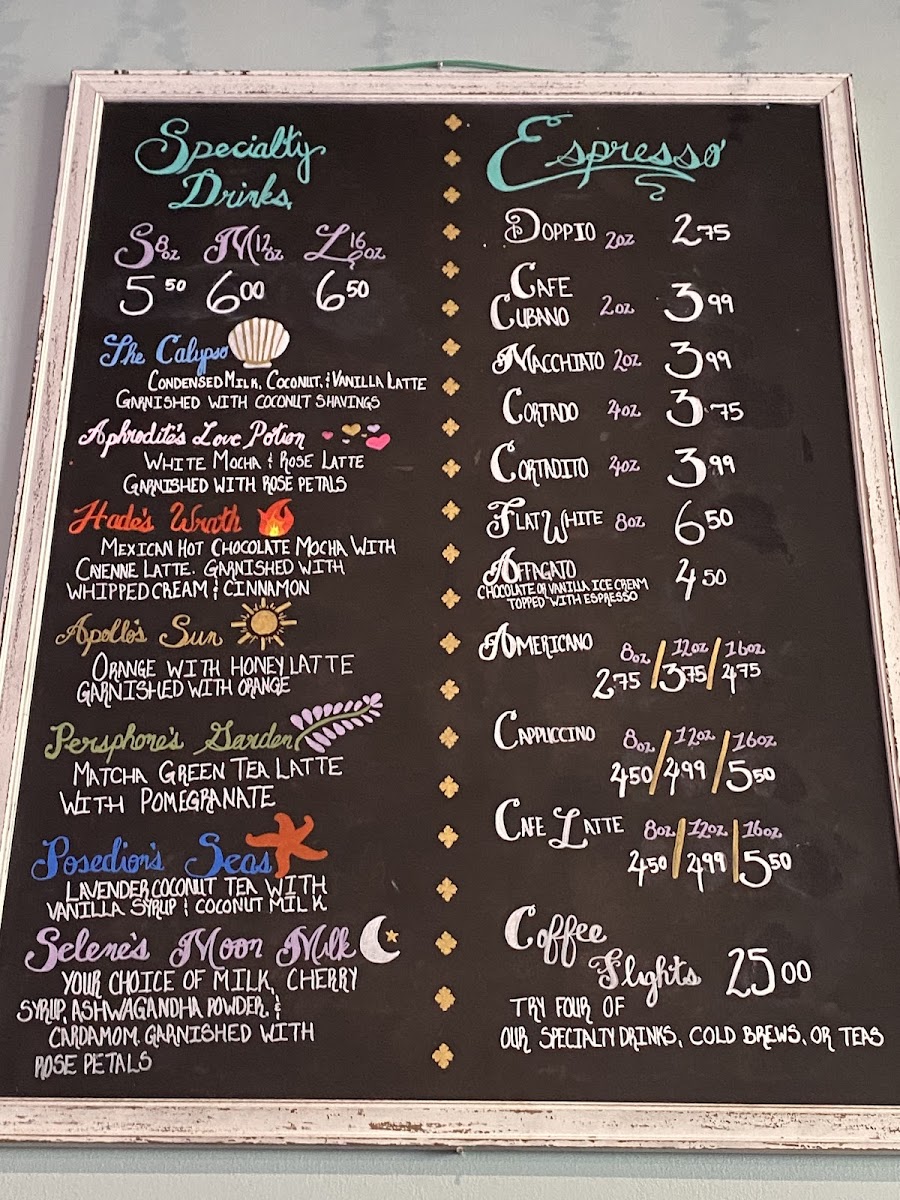 Specialty
Drinks
S 8oz M 12oz L 16oz
5 50 6 00 6 50
The Calypso
Condensed Milk, Coconut, & Vanilla Latte
Garnished with coconut shavings
Aphrodite's Love Potion
White Mocha & Rose Latte
Garnished with rose petals
Hade's Wrath
Mexican Hot Chocolate Mocha With
Cayenne Latte. Garnished with
whipped cream & cinnamon
Apollo's Sun
Orange with honey latte
Garnished with orange
Persphone's Garden
Matcha Green Tea Latte
With Pomegranate
Posedion's Seas
Lavender coconut tea with
vanilla syrup & coconut milk
Selene's Moon Milk
Your choice of milk, cherry
syrup, ashwagandha powder, &
cardamom. Garnished with
rose petals
Espresso
Doppio 2oz 2.75
Cafe
Cubano 2oz 3.99
Macchiato 2oz 3.99
Cortado 4oz 3.75
Cortadito 4oz 3.99
Flat White 8oz 6.50
Affagato 4.50
Chocolate or vanilla ice cream
topped with espresso
Americano 8oz / 12oz / 16oz
2.75 / 3.75 / 4.75
Cappuccino 8oz / 12oz / 16oz
4.50 / 4.99 / 5.50
Cafe Latte 8oz / 12oz / 16oz
4.50 / 4.99 / 5.50
Coffee
Flights 25.00
Try four of
our specialty drinks, cold brews, or teas